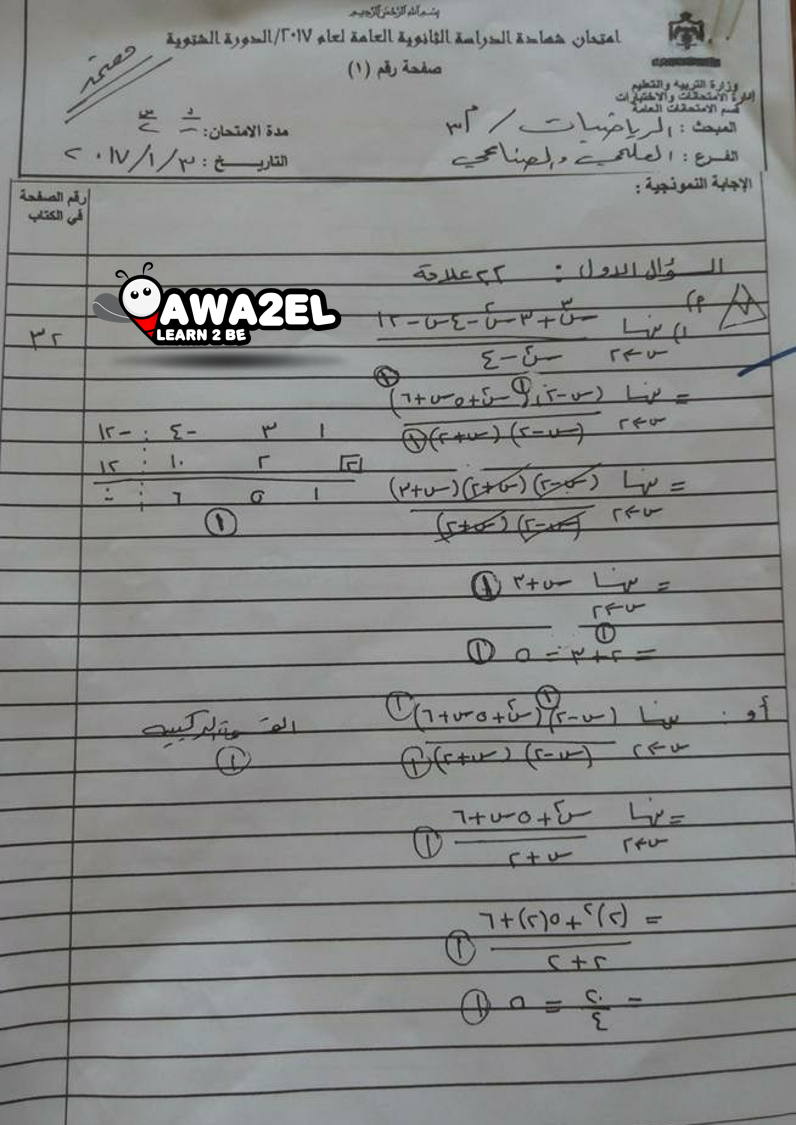 بسم الله الرحمن الرحيم
امتحان شهادة الدراسة الثانوية العامة لعام ٢٠١٧/الدورة الشتوية
صفحة رقم (١)
وزارة التربية والتعليم
إدارة الامتحانات والاختبارات
قسم الامتحانات العامة
المبحث : الرياضيات / م٣
مدة الامتحان:
الفرع : العلمي والصناعي
التاريخ : ٢٠١٧/١/٣
الإجابة النموذجية :
رقم الصفحة
في الكتاب
السؤال الأول : ٢٢ علامة
AWA2EL
LEARN 2 BE
٣٢
١) نهــا س³ + ٣س² - ٤س - ١٢
س←٢ س² - ٤
= نهــا (س-٢)(س²+٥س+٦)
س←٢ (س-٢)(س+٢)
١ ٣ -٤ -١٢
٢ ٢ ١٠ ١٢
١ ٥ ٦ ٠
= نهــا (س-٢)(س+٢)(س+٣)
س←٢ (س-٢)(س+٢)
= نهــا س+٣
س←٢
= ٢+٣ = ٥
أو : نهــا (س-٢)(س²+٥س+٦) القسمة التركيبية
س←٢ (س-٢)(س+٢)
= نهــا س²+٥س+٦
س←٢ س+٢
= (٢)²+٥(٢)+٦
٢+٢
= ٢٠ = ٥
٤